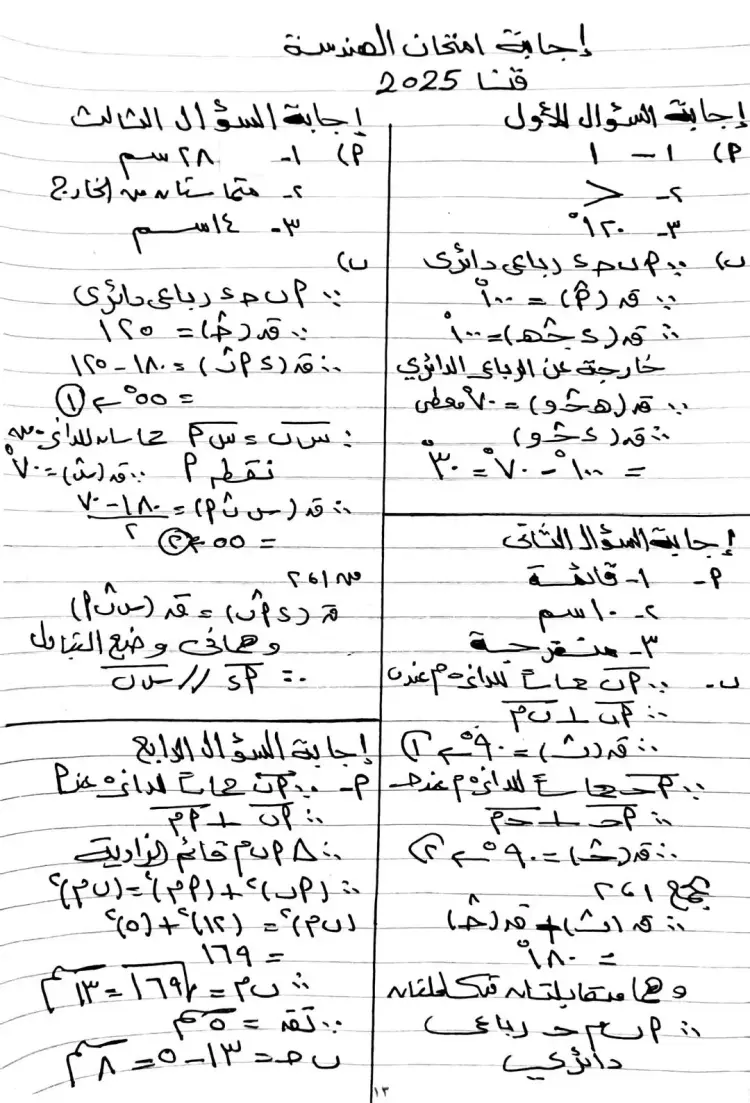 إجابة امتحان الهندسة
قنا 2025
إجابة السؤال الأول
(P ١ - ١
٢- >
٣- ١٢٠°
ب) ∵ P ب ح د رباعى دائرى
∵ قـ (P̂) = ١٠٠°
∴ قـ (د ح̂ هـ) = ١٠٠°
خارجة عن الرباعى الدائرى
∵ قـ (هـ ح̂ و) = ٧٠° معطى
∴ قـ (د ح̂ و)
= ١٠٠° - ٧٠° = ٣٠°
إجابة السؤال الثانى
P- ١- قائمة
٢- ١٠ سم
٣- منفرجة
ب- ∵ P ب مماساً للدائرة م عند ب
∴ P ب ⊥ ب م
∴ قـ (ب̂) = ٩٠° ← ١
∵ P ح مماساً للدائرة م عند ح
∴ P ح ⊥ ح م
∴ قـ (ح̂) = ٩٠° ← ٢
بجمع ١ ٢٦
∴ قـ (ب̂) + قـ (ح̂)
= ١٨٠°
وهما متقابلتان متكاملتان
∴ P ب م ح رباعى
دائرى
إجابة السؤال الثالث
(P ١- ٢٨ سم
٢- متماستان من الخارج
٣- ١٤ سم
ب)
∵ P ب ح د رباعى دائرى
∵ قـ (ح̂) = ١٢٥
∴ قـ (د P̂ ب) = ١٨٠ - ١٢٥
= ٥٥° ← ١
∵ س ب ، س P مماسان للدائرة من
نقطه P ∵ قـ (س̂) = ٧٠°
∴ قـ (س ب̂ P) = ١٨٠ - ٧٠
٢
= ٥٥ ← ٢
من ١ ٢٦
قـ (د P̂ ب) = قـ (س ب̂ P)
وهما فى وضع التبادل
∴ P د // س ب
إجابة السؤال الرابع
P- ∵ P ب مماساً للدائرة عند P
∴ P ب ⊥ P م
∴ Δ P ب م قائم الزاوية
∴ (P ب)² + (P م)² = (ب م)²
(ب م)² = (١٢)² + (٥)²
= ١٦٩
∴ ب م = √١٦٩ = ١٣ سم
∵ نقـ = ٥ سم
ب حـ = ١٣ - ٥ = ٨ سم
١٣